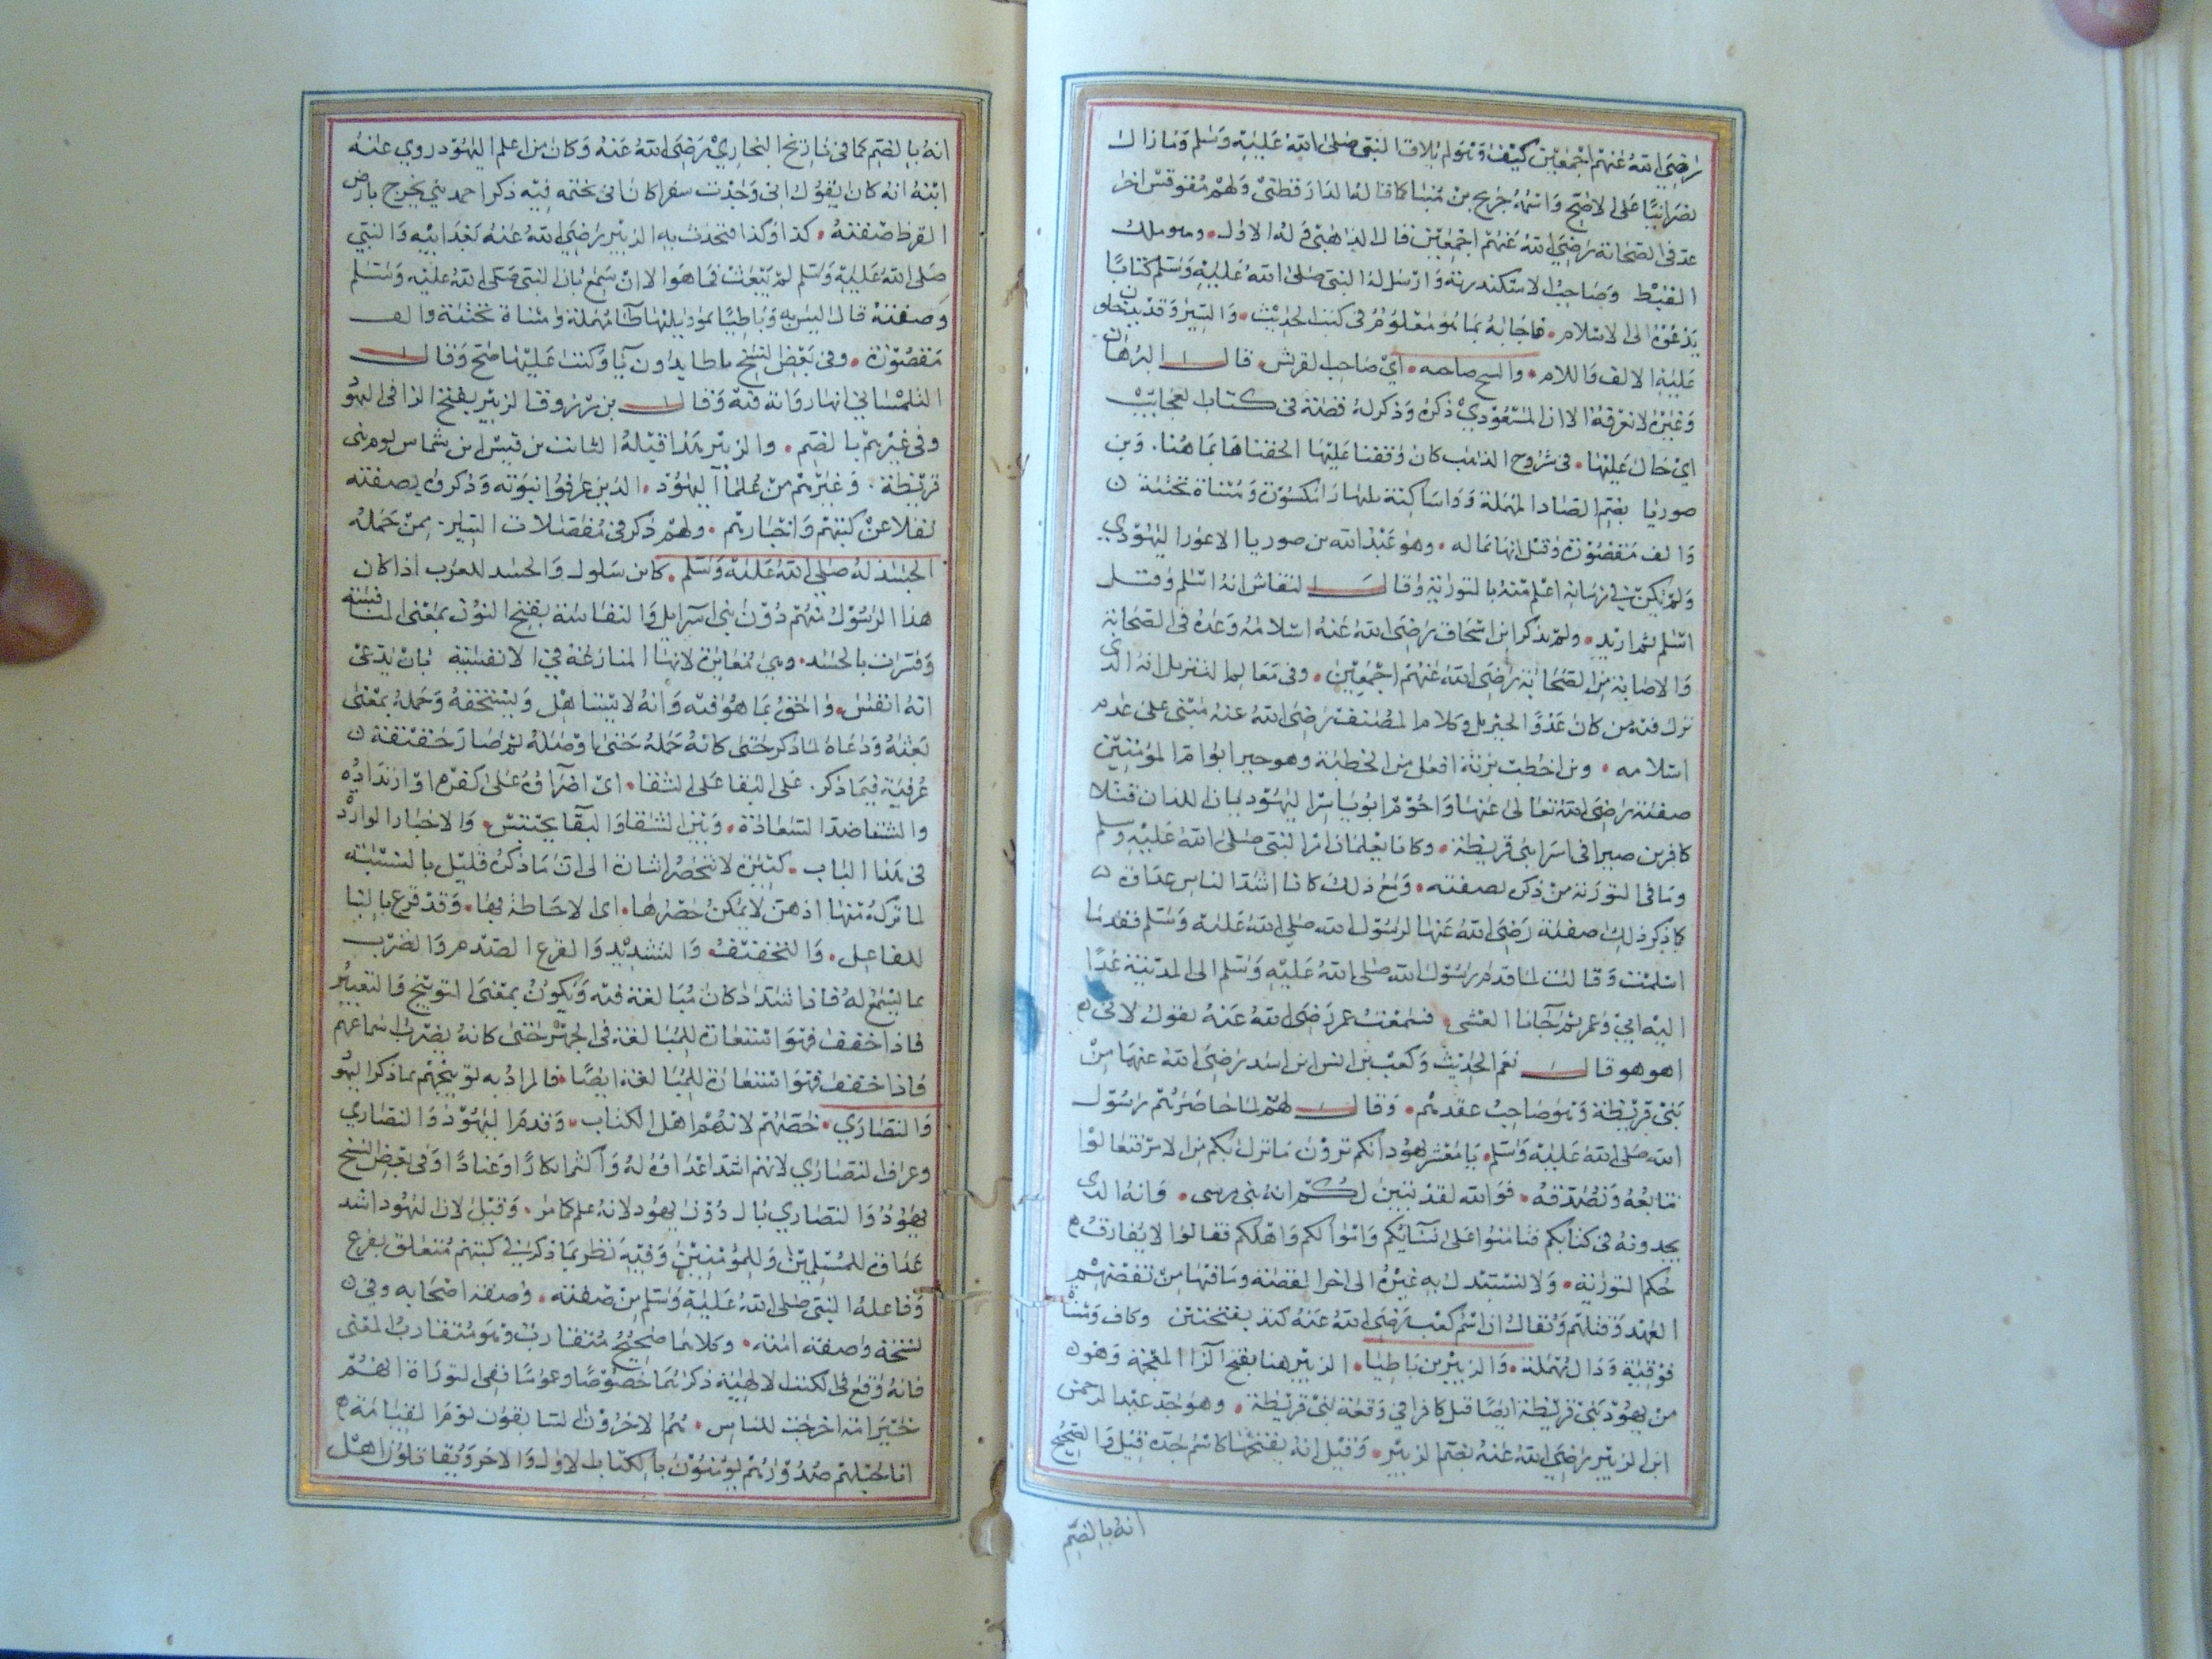 رضي الله عنهم اجمعين كيف وهو لم يلاق النبي صلى الله عليه وسلم وما زال
نصرانيا على الاصح واسمه جريج بن مينا كما قاله الدارقطني ولهم مقوقس اخر
عد في الصحابة رضي الله عنهم اجمعين قال الذهبي في له الاول وهو ملك
القبط وصاحب الاسكندرية وارسل له النبي صلى الله عليه وسلم كتابا
يدعوه الى الاسلام فاجابه بما هو معلوم في كتب الحديث والسير وقد
عليه الالف واللام والشيخ صاحبه اي صاحب لقريش قال البرهان
وغيره لا نعرفه الا ان المسعودي ذكره وذكر له قصة في كتاب العجائب
اي حال عليها في شروح الذهب كان وقفنا عليها الحقناها بما هنا وبن
صوريا بضم الصاد المهملة وواو ساكنة يليها راء مكسورة ومثناة تحتية
والف مقصورة وقيل انها ممالة وهو عبد الله بن صوريا الاعور اليهودي
ولم يكن في زمانه اعلم منه بالتورية وقال النقاش انه اسلم وقيل
اسلم ثم ارتد ولم يذكر ابن اسحاق رضي الله عنه اسلامه وعده في الصحابة
والاصابة من الصحابة رضي الله عنهم اجمعين وفي معالم التنزيل انه الذي
نزل فيه من كان عدوا لجبريل وكلام المصنف رضي الله عنه مبني على عدم
اسلامه وبن اخطب بزنة افعل من الخطبة وهو حيي ابو ام المؤمنين
صفية رضي الله تعالى عنها واخوه ابو ياسر اليهوديان اللذان قتلا
كافرين صبرا في اسرا بني قريظة وكانا يعلمان امر النبي صلى الله عليه وسلم
وما في التورية من ذكره بصفته ومع ذلك كانا اشد الناس عداوة
كما ذكر ذلك صفية رضي الله عنها لرسول الله صلى الله عليه وسلم فقد ما
اسلمت وقالت لما قدم رسول الله صلى الله عليه وسلم الى المدينة غدا
اليه ابي وعمي ثم جاءا العشي فسمعت عمي رضي الله عنه يقول لابي
اهو هو قال نعم الحديث وكعب بن اسد رضي الله عنهما من
بني قريظة وهو صاحب عقدهم وقال لهم لما حاصرهم رسول
الله صلى الله عليه وسلم يا معشر يهود انكم ترون ما نزل بكم من الامر فتعالوا
نتابعه ونصدقه فوالله لقد تبين لكم انه نبي مرسل وانه الذي
تجدونه في كتابكم فتامنوا على نسائكم واموالكم واهلكم فقالوا لا نفارق
حكم التورية ولا نستبدل به غيره الى اخر القصة وما فيها من نقضهم
العهد وقتلهم ويقال ان اسم كعب رضي الله عنه كند بفتحتين وكاف
فوقية ودال مهملة والزبير بن باطيا الزبير هنا بفتح الزاء المعجمة وهو
من يهود بني قريظة ايضا قتل كافرا في وقعة بني قريظة وهو جد عبد الرحمن
ابن الزبير رضي الله عنه بضم الزبير وقيل انه بفتحها كاسم جده قيل والصحيح
انه بالضم
انه بالضم كما في تاريخ البخاري رضي الله عنه وكان من اعلم اليهود روي عنه
ابنه انه كان يقول اني وجدت سفرا كان ابي يختمه فيه ذكر احمد نبي يخرج بارض
القرظ صفته كذا وكذا فتحدث به الزبير رضي الله عنه بعد ابيه والنبي
صلى الله عليه وسلم لم يبعث فما هو الا ان سمع بان النبي صلى الله عليه وسلم
وصفته قال ليس به وباطيا بموحدة يليها طاء مهملة ومثناة تحتية والف
مقصورة وفي بعض النسخ باطا بدون يا وكتب عليها صح وقال
التلمساني انها رواية فيه وقال بن مرزوق الزبير بفتح الزا في اليهو
وفي غيرهم بالضم والزبير هذا قيله الثابت بن قيس ابن شماس يوم بني
قريظة وغيرهم من علماء اليهود الذين عرفوا نبوته وذكروه بصفته
نقلا عن كتبهم واخبارهم ولهم ذكر في مفصلات السير ممن حمله
الحسد له صلى الله عليه وسلم كابن سلول والحسد للعرب اذ كان
هذا الرسول منهم دون بني اسرايل والنفاسة بفتح النون بمعنى المنافسة
وفسرت بالحسد وهي مغايرة لانها المنازعة في الانفسية بان يدعي
انه انفس واحق بما هو فيه وانه لا يستاهل ويستخفه وحمله بمعنى
بعثه ودعاه لما ذكر حتى كانه حمله حتى اوصله ثم صار حقيقة
عرفية فيما ذكر على البقا على الشقا اي اصراره على كفره او ازدياده
والشقا ضد السعادة وبين الشقا والبقا تجنيس والاخبار الواردة
في هذا الباب كثيرة لا تنحصر اشارة الى ان ما ذكره قليل بالنسبة
لما تركه منها اذ هي لا يمكن حصرها اي الاحاطة بها وقد قرع بالبنا
للفاعل والتخفيف والتشديد والقرع الصدم والضرب
بما يسمع له فاذا شدد كان مبالغة فيه ويكون بمعنى التوبيخ والتعيير
فاذا خفف فهو استعارة للمبالغة في الجهر حتى كانه يضرب اسماعهم
فاذا خفف فهو استعارة للمبالغة ايضا فالمراد به توبيخهم بما ذكر اليهو
والنصاري خصهم لانهم اهل الكتاب وقدم اليهود والنصاري
وعرف النصاري لانهم اشد اعداوة له واكثر انكارا وعنادا وفي بعض النسخ
يهود والنصاري بال دون يهود لانه علم كما مر وقيل لان اليهود اشد
عداوة للمسلمين وللمؤمنين وفيه نظر بما ذكر في كتبهم متعلق بقرع
وفاعله النبي صلى الله عليه وسلم من صفته وصفة اصحابه وفي
نسخة وصفة امته وكلاهما صحيح متقارب وهو متقارب المعنى
فانه وقع في الكتب الالهية ذكرهما خصوصا وعموما ففي التوراة انهم
خير امة اخرجت للناس هم الاخرون السابقون يوم القيامة
اناجيلهم صدورهم يؤمنون بالكتاب الاول والاخر ويقاتلون اهل